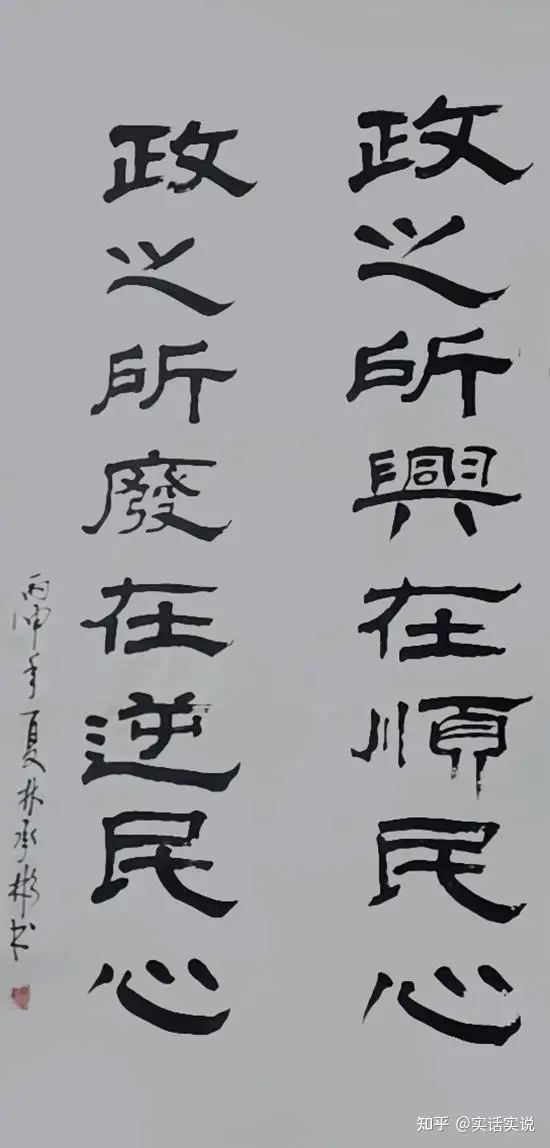 政之所興在順民心
政之所廢在逆民心
丙申年夏林承彬书
知乎 @实话实说